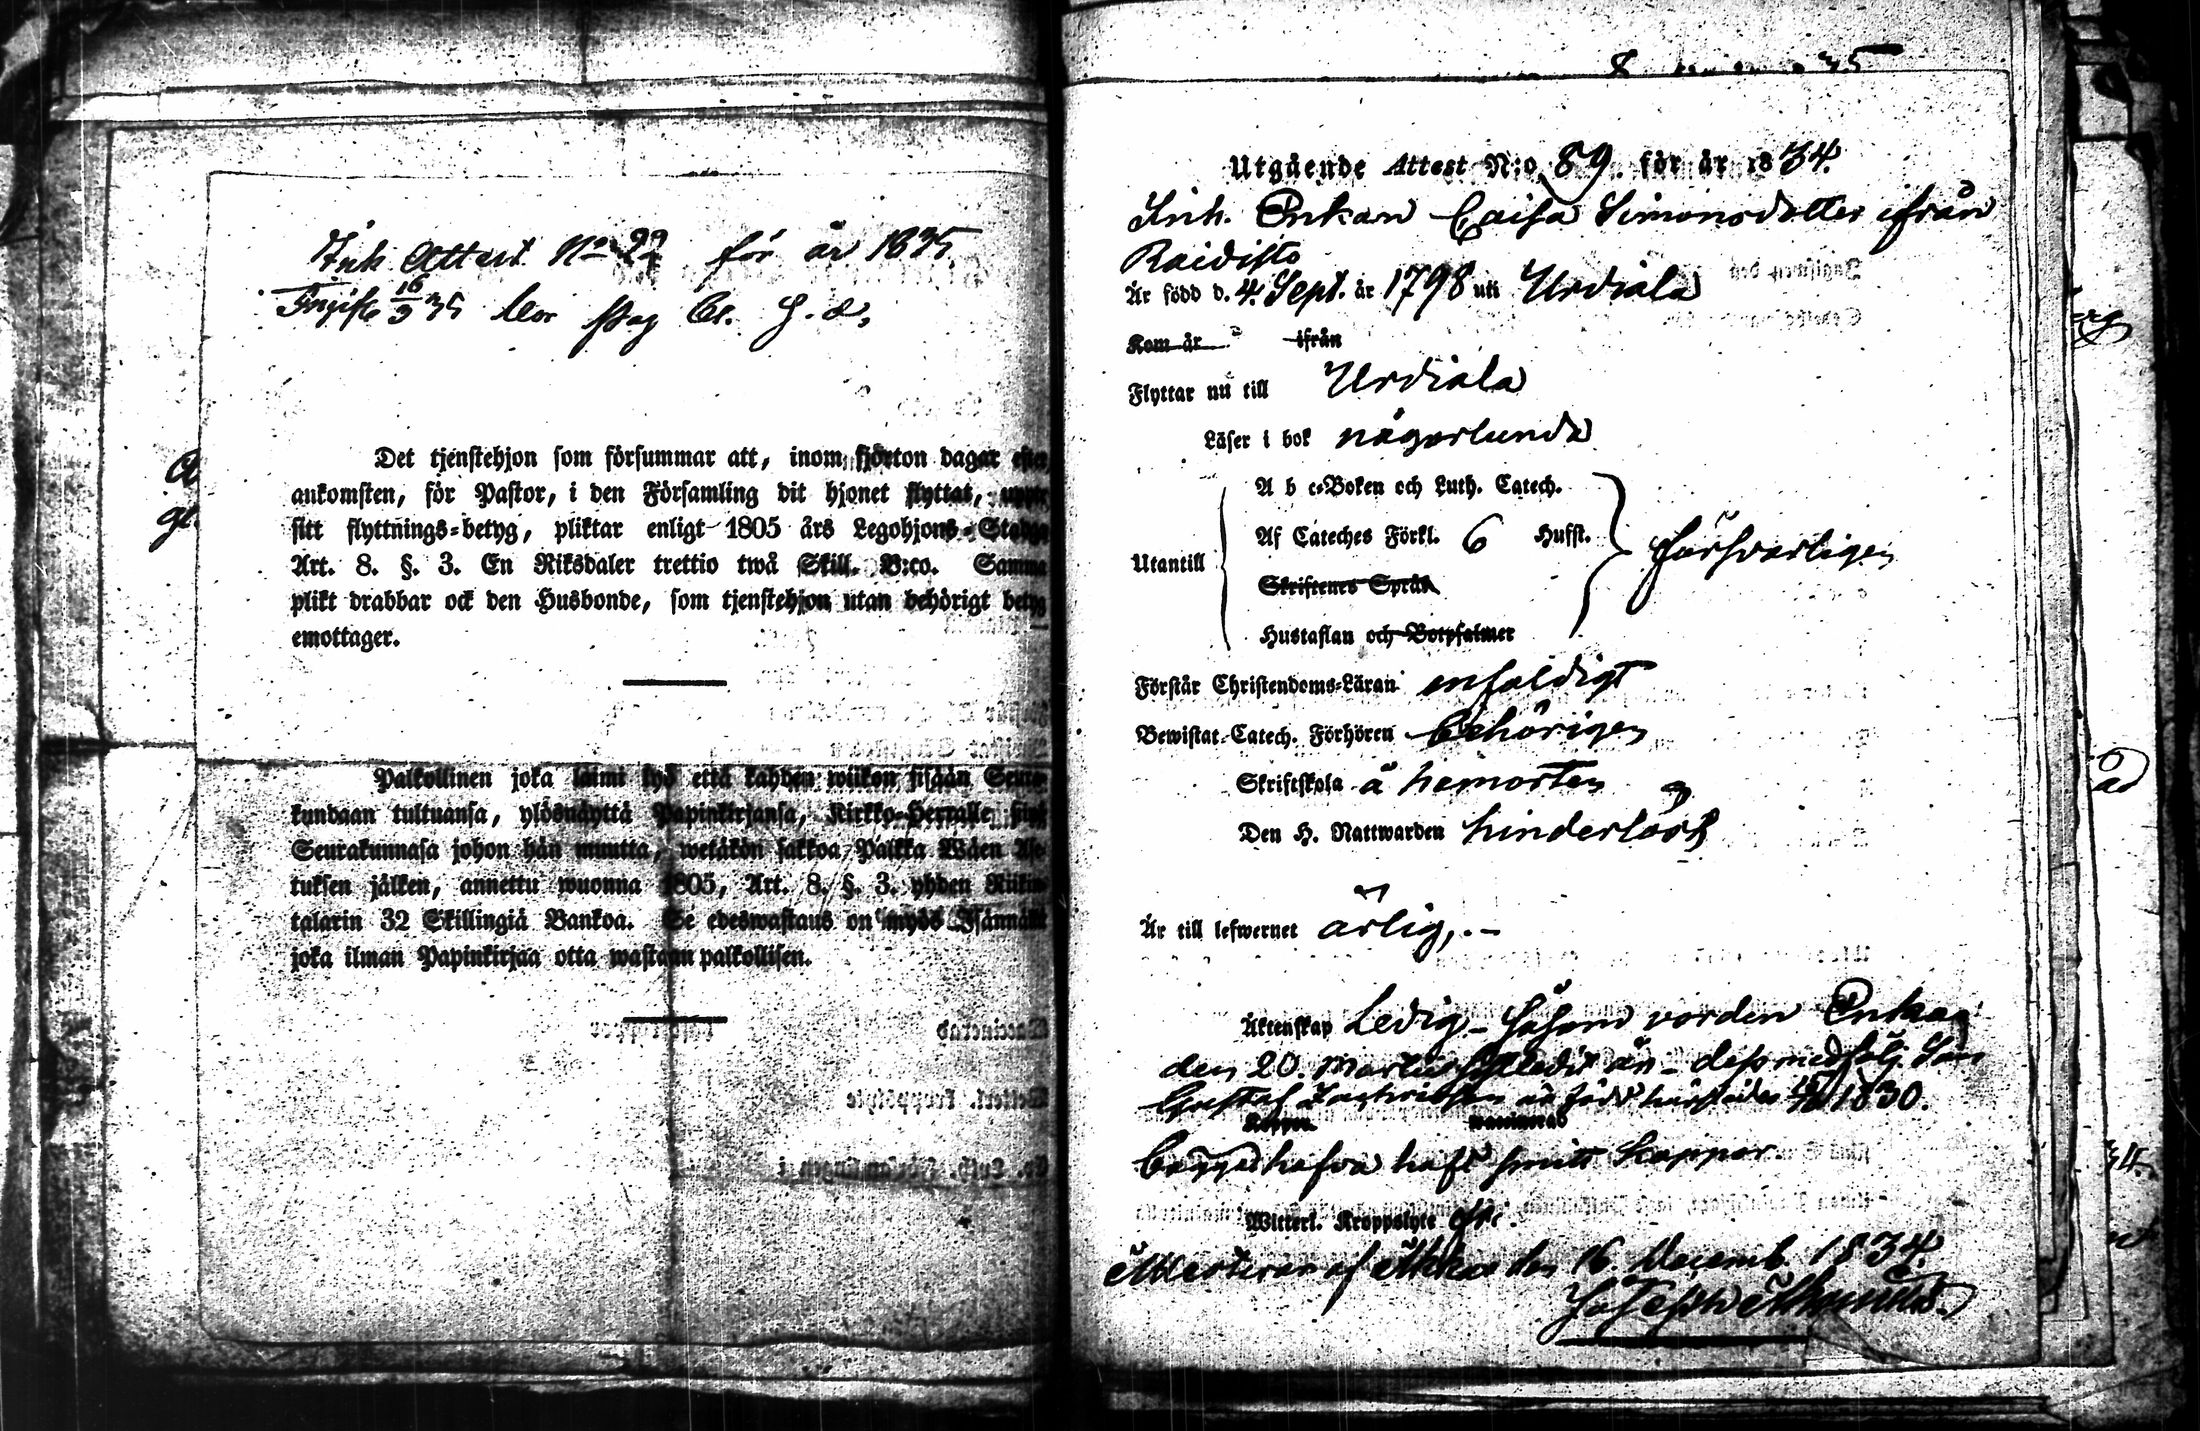 Ink Attest No 22 för år 1835.
Det tjenstehjon som försummar att, inom fjorton dagar efter
ankomsten, för Pastor, i den Församling dit hjonet flyttat,
sitt flyttnings-betyg, pliktar enligt 1805 års Legohjons-Stadga
Art. 8. §. 3. En Riksdaler trettio twå Skill. B:co. Samma
plikt drabbar ock den Husbonde, som tjenstehjon utan behörigt betyg
emottager.
Palkollinen joka laimi lyö että kahden wiikon sisään Seura-
kundaan tultuansa, ylösnäyttä Papinkirjansa, Kirkko-Herralle siinä
Seurakunnasa johon hän muutta, wetäkön sakkoa Palkka Wäen Ase-
tuksen jälken, annettu wuonna 1805, Art. 8. §. 3. yhden Riikin-
talarin 32 Skillingiä Bankoa. Se edeswastaus on myös Isännäll
joka ilman Papinkirjaa otta wastaan palkollisen.
Utgående Attest N:o 89. för år 1834.
Inh. Enkan Caisa Simonsdotter ifrån
Raidisto
Är född d. 4. Sept. år 1798 uti Urdiala
Kom år ifrån
Flyttar nu till Urdiala
Läser i bok någorlunda
A b c-Boken och Luth. Catech.
Af Cateches Förkl. 6 Hufst.
Utantill försvarligen
Skriftenes Språk
Hustaflan och Botpsalmer
Förstår Christendoms-Läran enfaldigt
Bewistat Catech. Förhören behörigen
Skriftskola å hemorten
Den H. Nattwarden hinderlöst
Är till lefwernet ärlig,.-
Äktenskap Ledig - såsom vorden Enka
den 20. Martii sistledit år - dess medfölj. Son
Gustaf är född härstädes 1830.
Koppor. waccinerad
Begge hafva haft smitt Koppor.
Witterl. Kroppslyte
Attesterar af Akkas den 16. Decemb. 1834.
Joseph